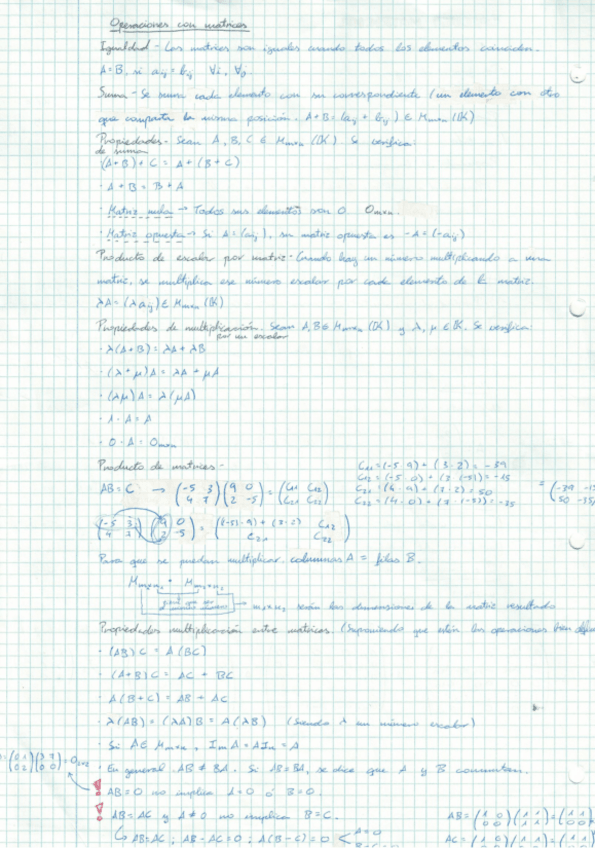 Operaciones con matrices
Igualdad - Las matrices son iguales cuando todos los elementos coinciden.
A = B, si aij = bij ∀i, ∀j
Suma - Se suma cada elemento con su correspondiente (un elemento con otro
que comparta la misma posición. A+B = (aij + bij) ∈ Mmxn (K)
Propiedades - Sean A, B, C ∈ Mmxn (K). Se verifica:
de suma
· (A+B) + C = A + (B+C)
· A + B = B + A
· Matriz nula → Todos sus elementos son 0. Omxn.
· Matriz opuesta → Si A = (aij), su matriz opuesta es -A = (-aij)
Producto de escalar por matriz - Cuando hay un número multiplicando a una
matriz, se multiplica ese número escalar por cada elemento de la matriz.
λA = (λaij) ∈ Mmxn (K)
Propiedades de multiplicación. Sean A, B ∈ Mmxn (K) y λ, μ ∈ K. Se verifica:
por un escalar
· λ(A+B) = λA + λB
· (λ+μ)A = λA + μA
· (λμ)A = λ(μA)
· 1 · A = A
· 0 · A = Omxn
Producto de matrices -
AB = C → (-5 3 / 4 7)(9 0 / 2 -5) = (C11 C12 / C21 C22)
C11 = (-5 · 9) + (3 · 2) = -39
C12 = (-5 · 0) + (3 · (-5)) = -15
C21 = (4 · 9) + (7 · 2) = 50
C22 = (4 · 0) + (7 · (-5)) = -35
= (-39 -15 / 50 -35)
C12
C21 C22
Para que se puedan multiplicar, columnas A = filas B.
serán las dimensiones de la matriz resultado
Propiedades multiplicación entre matrices. (Suponiendo que estén las operaciones bien
· (AB)C = A(BC)
· (A+B)C = AC + BC
· A(B+C) = AB + AC
· λ(AB) = (λA)B = A(λB) (Siendo λ un número escalar)
· Si A ∈ Mmxn, ImA = AIn = A
· En general AB ≠ BA. Si AB = BA, se dice que A y B conmutan.
! AB = 0 no implica A = 0 ó B = 0.
! AB = AC y A ≠ 0 no implica B = C.
AB = AC ; AB - AC = 0 ; A(B-C) = 0 < A = 0